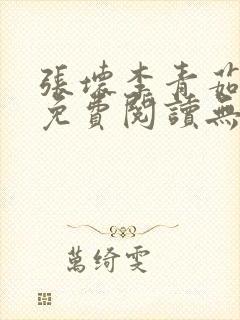 張壞李青茹
免費閱讀無
萬綺雯